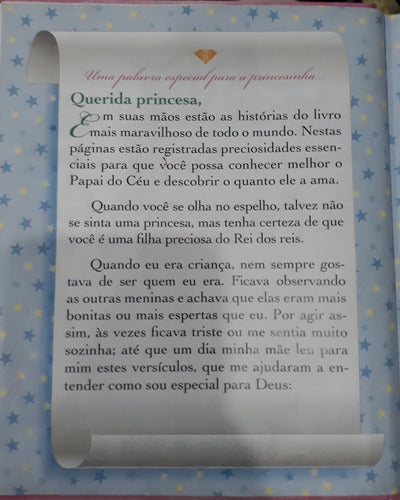 Uma palavra especial para a princesinha...
Querida princesa,
Em suas mãos estão as histórias do livro
mais maravilhoso de todo o mundo. Nestas
páginas estão registradas preciosidades essen-
ciais para que você possa conhecer melhor o
Papai do Céu e descobrir o quanto ele a ama.
Quando você se olha no espelho, talvez não
se sinta uma princesa, mas tenha certeza de que
você é uma filha preciosa do Rei dos reis.
Quando eu era criança, nem sempre gos-
tava de ser quem eu era. Ficava observando
as outras meninas e achava que elas eram mais
bonitas ou mais espertas que eu. Por agir as-
sim, às vezes ficava triste ou me sentia muito
sozinha; até que um dia minha mãe leu para
mim estes versículos, que me ajudaram a en-
tender como sou especial para Deus: